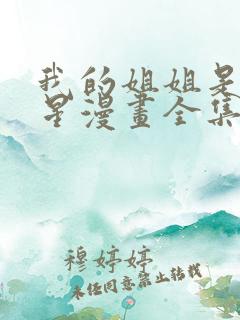 我的姐姐是
星漫畫全集
穆婷婷
未经同意禁止转载